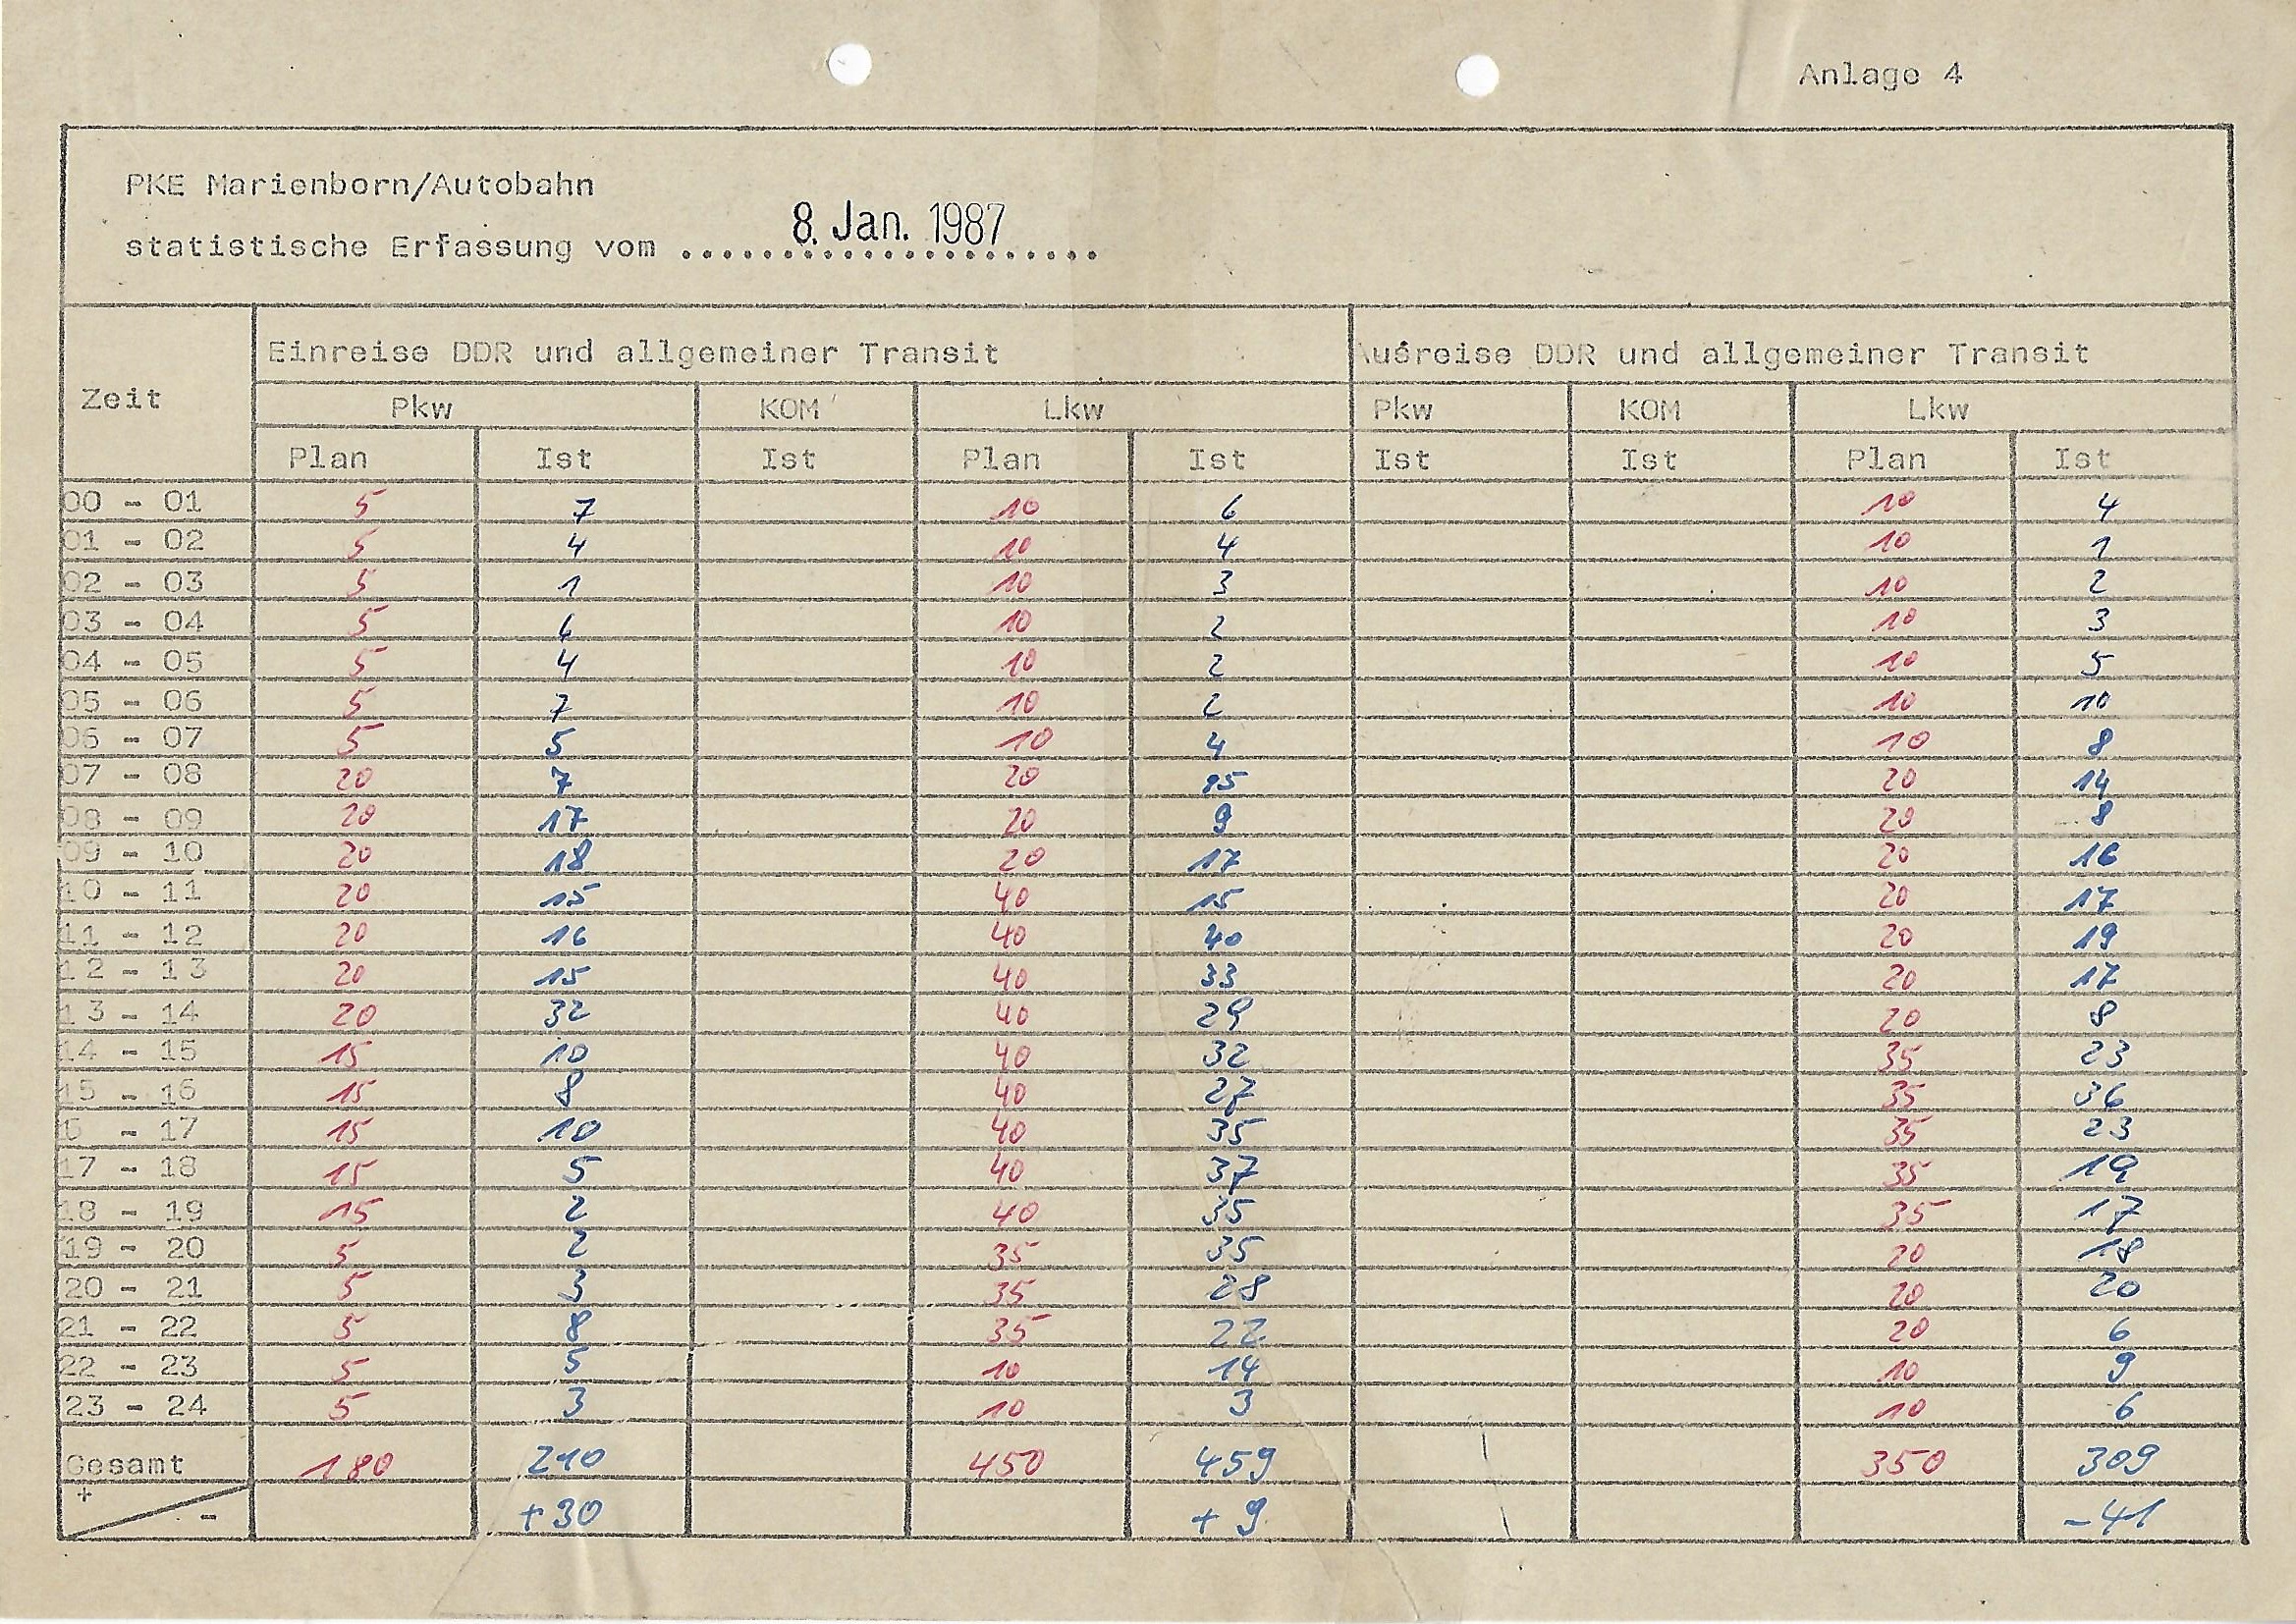 Anlage 4
PKE Marienborn/Autobahn
8. Jan. 1987
statistische Erfassung vom .....................
Zeit Einreise DDR und allgemeiner Transit Ausreise DDR und allgemeiner Transit
Pkw KOM Lkw Pkw KOM Lkw
Plan Ist Ist Plan Ist Ist Ist Plan Ist
00 - 01 5 7 10 6 10 4
01 - 02 5 4 10 4 10 1
02 - 03 5 1 10 3 10 2
03 - 04 5 6 10 2 10 3
04 - 05 5 4 10 2 10 5
05 - 06 5 7 10 2 10 10
06 - 07 5 5 10 4 10 8
07 - 08 20 7 20 15 20 14
08 - 09 20 17 20 9 20 8
09 - 10 20 18 20 17 20 16
10 - 11 20 15 40 15 20 17
11 - 12 20 16 40 40 20 19
12 - 13 20 15 40 33 20 17
13 - 14 20 32 40 29 20 8
14 - 15 15 10 40 32 35 23
15 - 16 15 8 40 27 35 36
6 - 17 15 10 40 35 35 23
17 - 18 15 5 40 37 35 19
18 - 19 15 2 40 35 35 17
19 - 20 5 2 35 35 20 18
20 - 21 5 3 35 28 20 20
21 - 22 5 8 35 22 20 6
22 - 23 5 5 10 14 10 9
23 - 24 5 3 10 3 10 6
Gesamt 180 210 450 459 350 309
+ - +30 +9 -41